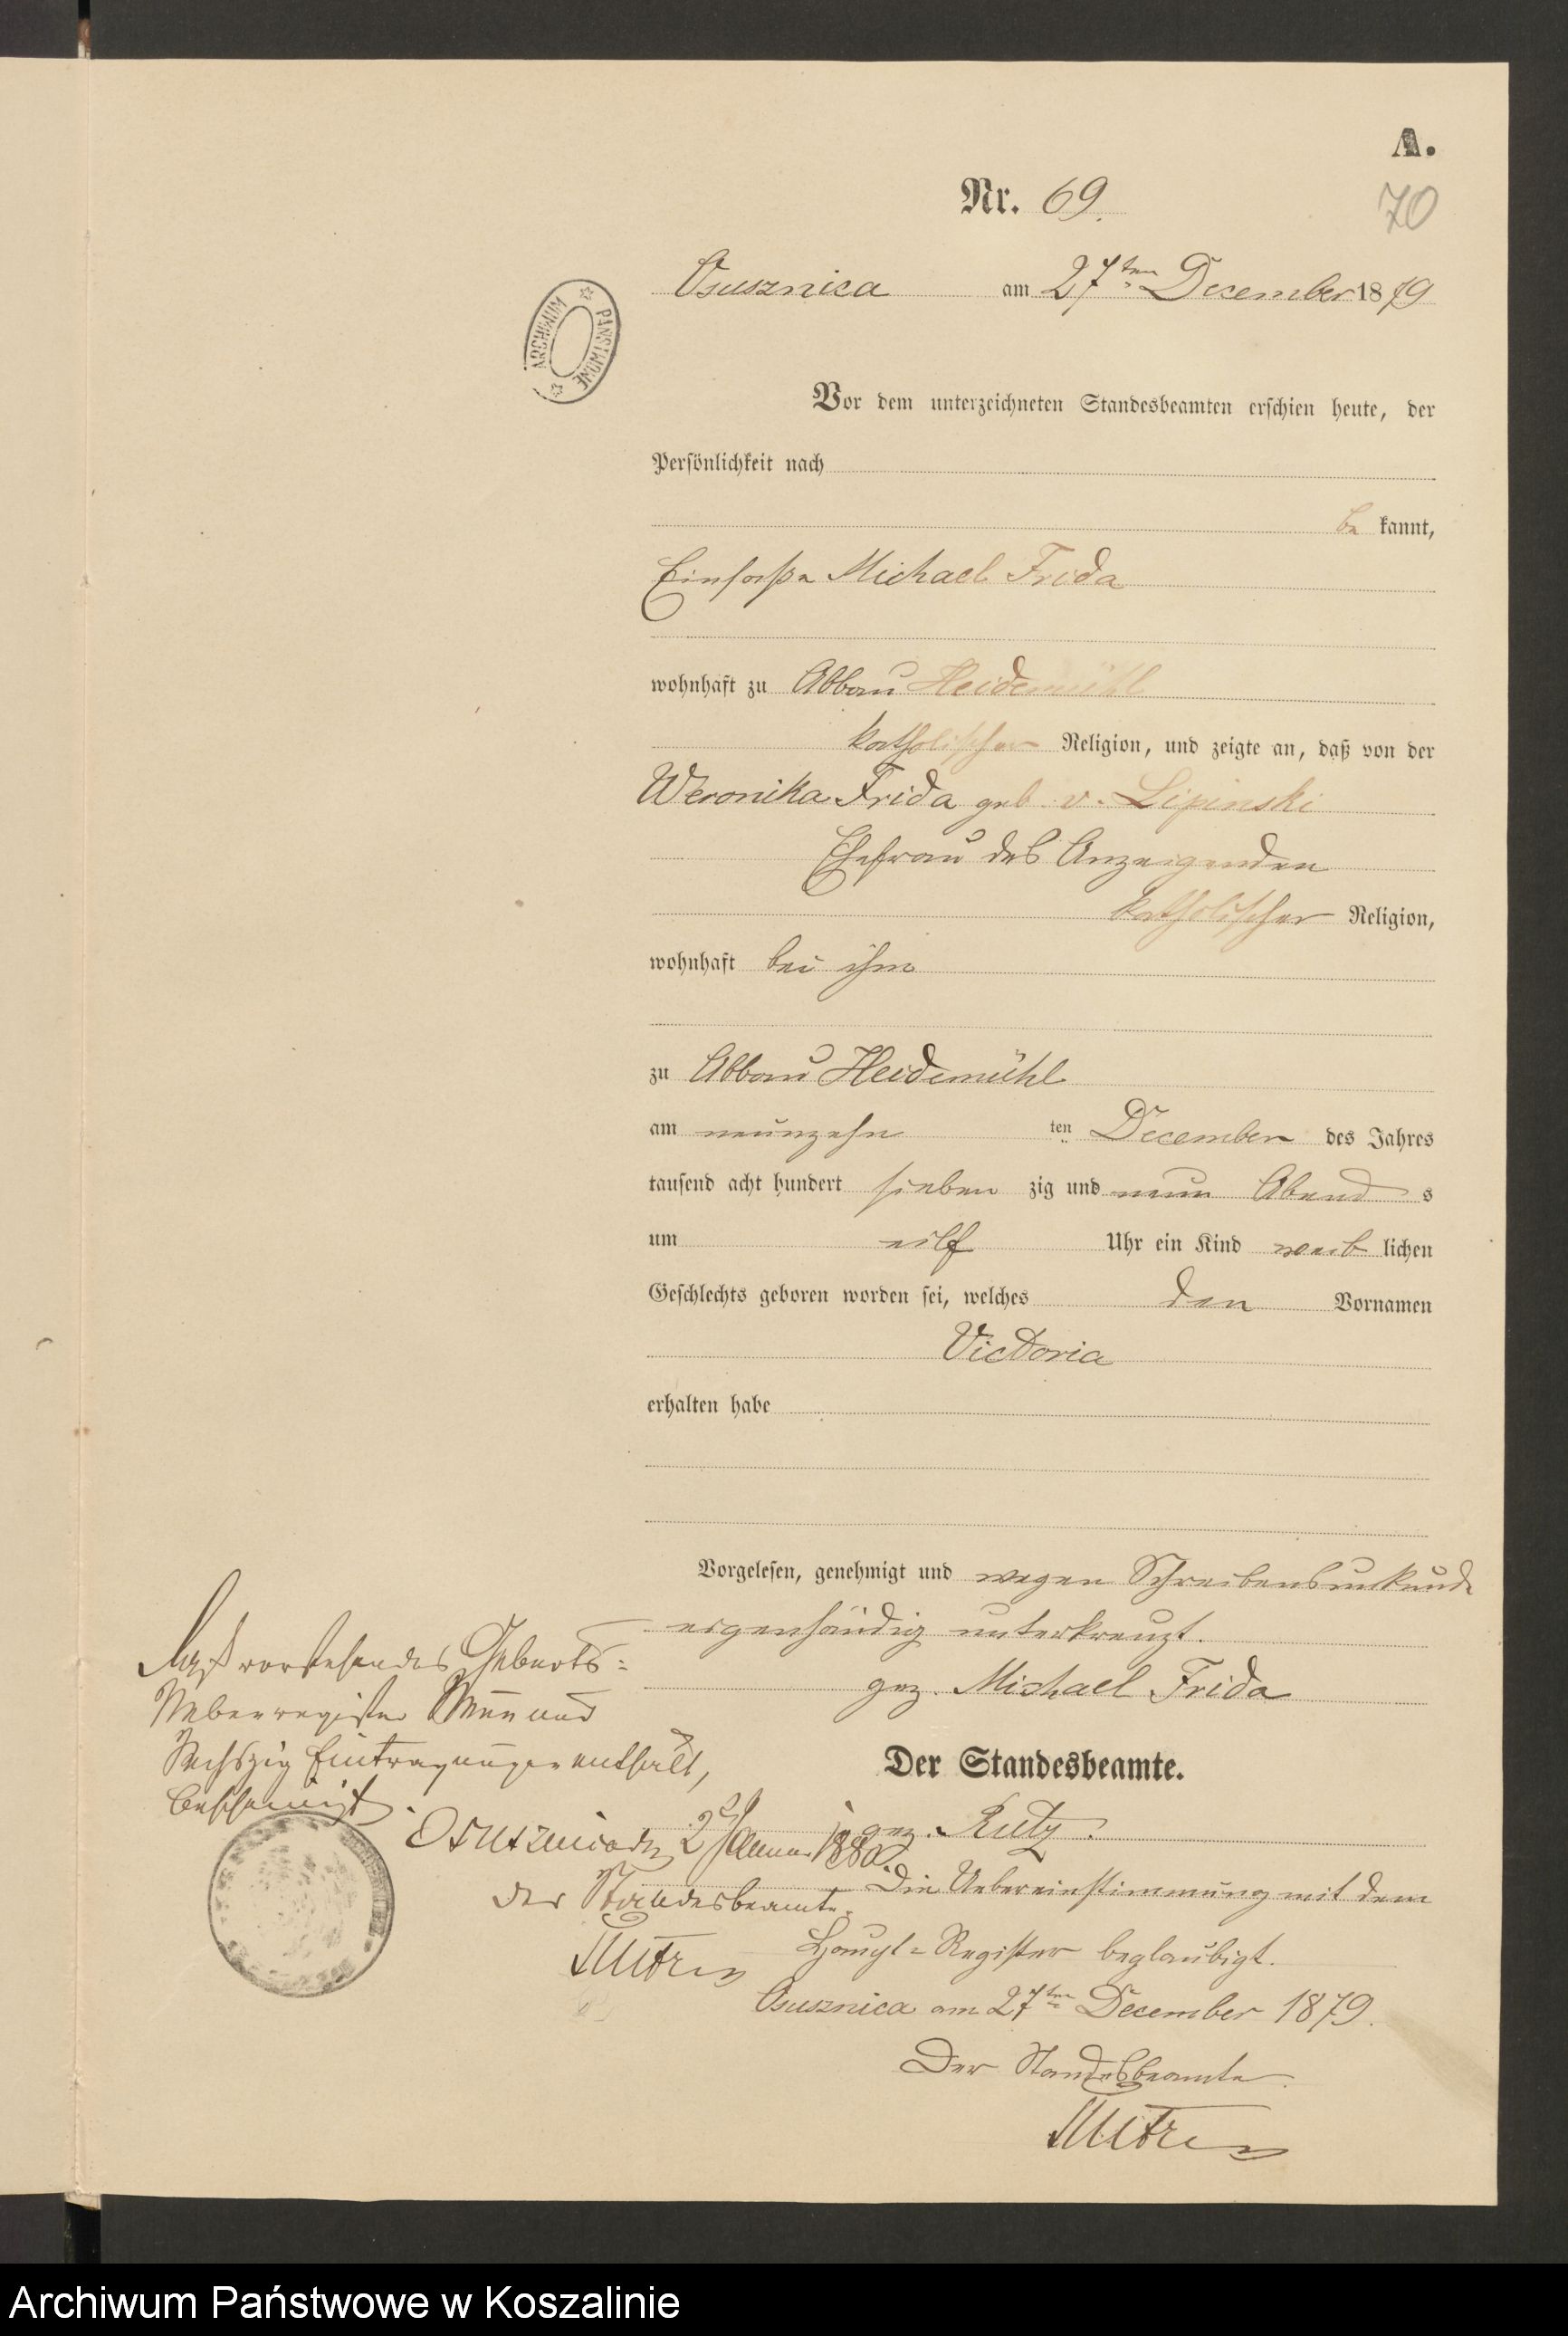 A.
Nr. 69.
70
Osusznica am 27ten December 1879
ARCHIWUM PAŃSTWOWE
Vor dem unterzeichneten Standesbeamten erschien heute, der
Persönlichkeit nach
be kannt,
Einsaße Michael Frida
wohnhaft zu Abbau Heidemühl
katholischer Religion, und zeigte an, daß von der
Weronika Frida geb. v. Lipinski
Ehefrau des Anzeigenden
katholischer Religion,
wohnhaft bei ihm
zu Abbau Heidemühl
am neunzehn ten December des Jahres
tausend acht hundert sieben zig und neun Abend s
um eilf Uhr ein Kind weib lichen
Geschlechts geboren worden sei, welches den Vornamen
Victoria
erhalten habe
Vorgelesen, genehmigt und wegen Schreibensunkunde
eigenhändig unterkreuzt.
gez. Michael Frida
Der Standesbeamte.
gez. Rutz.
Die Uebereinstimmung mit dem
Haupt-Register beglaubigt.
Osusznica am 27ten December 1879.
Der Standesbeamte.
Daß vorstehendes Geburts-
Nebenregister Neun und
Sechszig Eintragungen enthält,
bescheinigt.
Osusznica den 2 Januar 1880.
Der Standesbeamte.
Archiwum Państwowe w Koszalinie